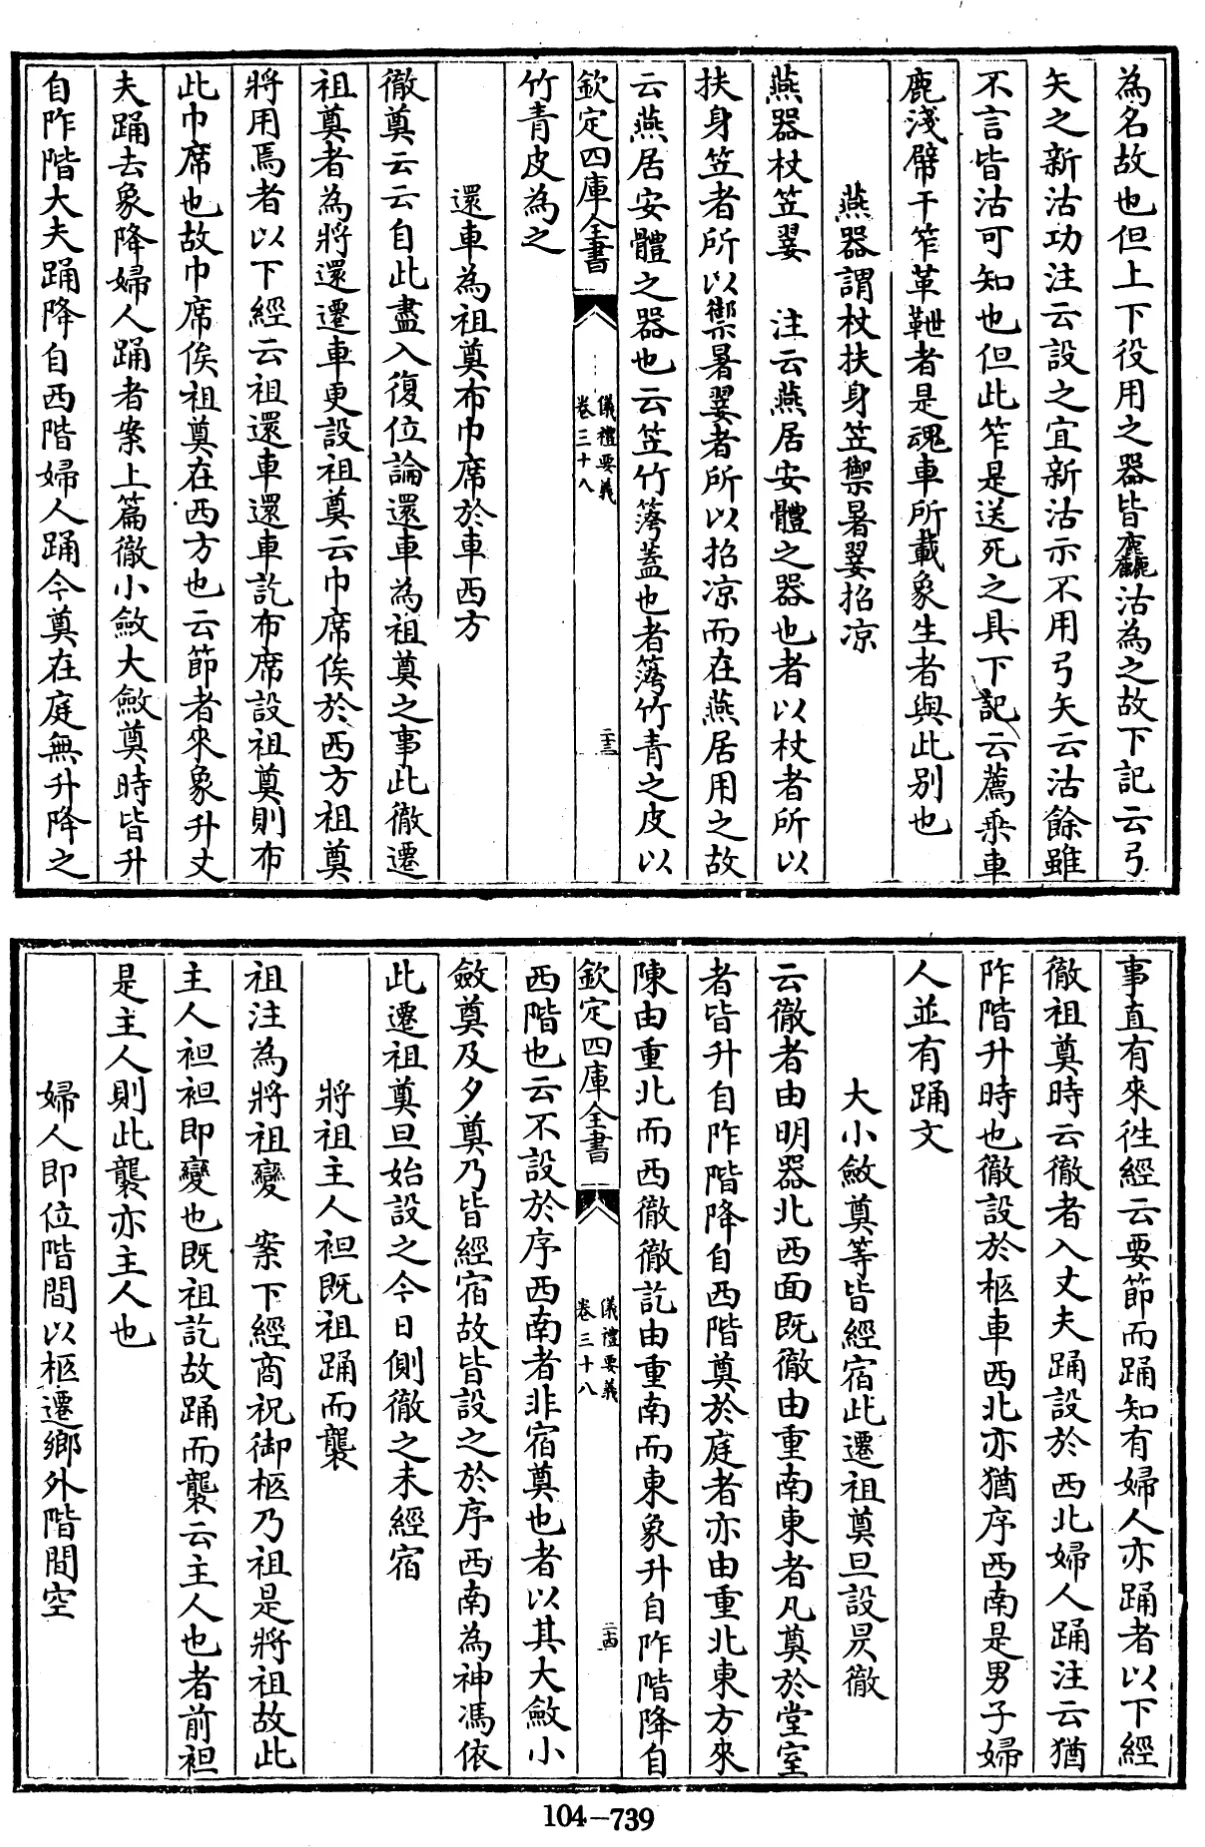 為名故也但上下役用之器皆麤沽為之故下記云弓
矢之新沽功注云設之宜新沽示不用弓矢云沽餘雖
不言皆沽可知也但此笮是送死之具下記云薦乘車
鹿淺幦干笮革靾者是魂車所載象生者與此別也
燕器謂杖扶身笠禦暑翣招凉
燕器杖笠翣 注云燕居安體之器也者以杖者所以
扶身笠者所以禦暑翣者所以招凉而在燕居用之故
云燕居安體之器也云笠竹䈏蓋也者䈏竹青之皮以
欽定四庫全書
儀禮要義
卷三十八
二十三
竹青皮為之
還車為祖奠布巾席於車西方
徹奠云云自此盡入復位論還車為祖奠之事此徹遷
祖奠者為將還遷車更設祖奠云巾席俟於西方祖奠
將用焉者以下經云祖還車還車訖布席設祖奠則布
此巾席也故巾席俟祖奠在西方也云節者來象升丈
夫踊去象降婦人踊者案上篇徹小斂大斂奠時皆升
自阼階大夫踊降自西階婦人踊今奠在庭無升降之
事直有來徃經云要節而踊知有婦人亦踊者以下經
徹祖奠時云徹者入丈夫踊設於西北婦人踊注云猶
阼階升時也徹設於柩車西北亦猶序西南是男子婦
人並有踊文
大小斂奠等皆經宿此遷祖奠旦設昃徹
云徹者由明器北西面既徹由重南東者凡奠於堂室
者皆升自阼階降自西階奠於庭者亦由重北東方來
陳由重北而西徹徹訖由重南而東象升自阼階降自
欽定四庫全書
儀禮要義
卷三十八
二十四
西階也云不設於序西南者非宿奠也者以其大斂小
斂奠及夕奠乃皆經宿故皆設之於序西南為神馮依
此遷祖奠旦始設之今日側徹之未經宿
將祖主人袒既祖踊而襲
祖注為將祖變 案下經商祝御柩乃祖是將祖故此
主人袒袒即變也既祖訖故踊而襲云主人也者前袒
是主人則此襲亦主人也
婦人即位階間以柩遷鄉外階間空
104-739